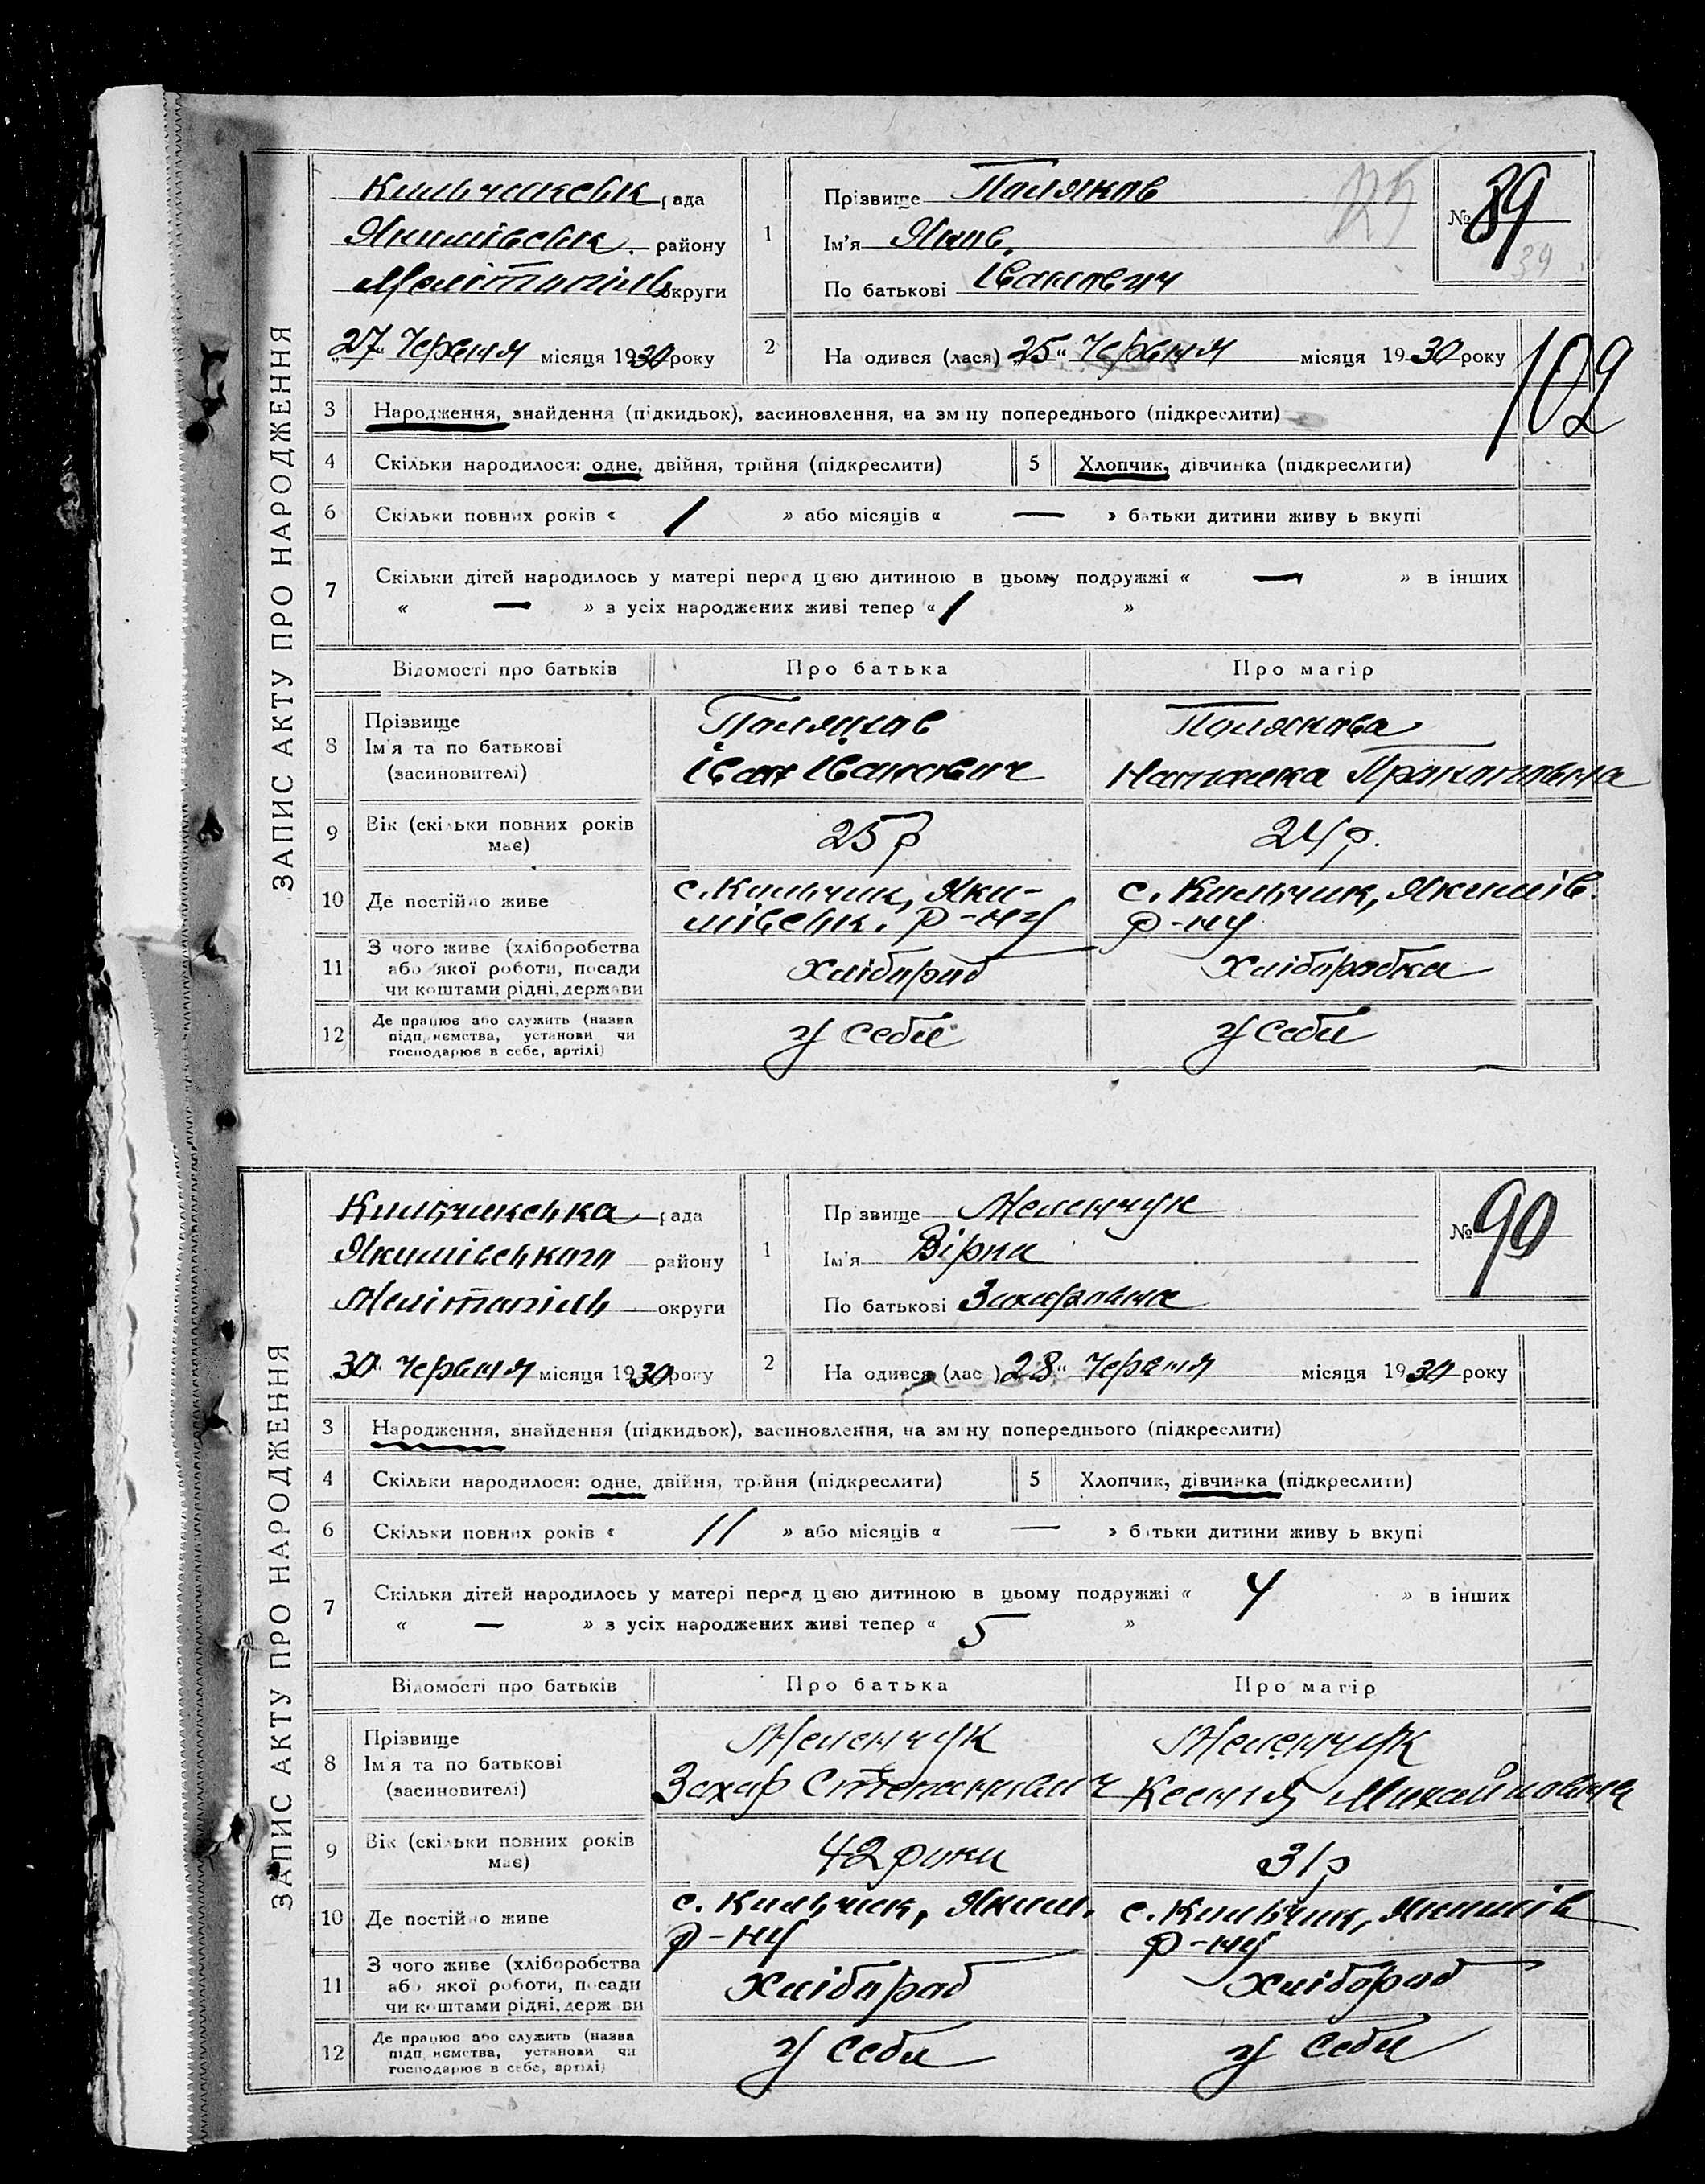 ЗАПИС АКТУ ПРО НАРОДЖЕННЯ
Кильчикськ рада
Якимівськ. району
Мелітопіль округи
„27" Червня місяця 1930 року
1 Прізвище Поляков
Ім'я Яков
По батькові Іванович
125
№ 89
39
2 Народився (лася) „25" Червня місяця 1930 року
102
3 Народження, знайдення (підкидьок), засиновлення, на зміну попереднього (підкреслити)
4 Скільки народилося: одне, двійня, трійня (підкреслити) 5 Хлопчик, дівчинка (підкреслити)
6 Скільки повних років « 1 » або місяців « — » батьки дитини живуть вкупі
7 Скільки дітей народилось у матері перед цією дитиною в цьому подружжі « — » в інших
« — » з усіх народжених живі тепер « 1 »
Відомості про батьків Про батька Про матір
8 Прізвище Поляков Полякова
Ім'я та по батькові Іван Іванович Наталка Прокоповна
(засиновителі)
9 Вік (скільки повних років має) 25 р 24 р.
10 Де постійно живе с. Кильчик, Якимівськ. р-ну с. Кильчик, Якимів. р-ну
11 З чого живе (хліборобства або якої роботи, посади чи коштами рідні, держави Хлібороб Хліборобка
12 Де працює або служить (назва підприємства, установи чи господарює в себе, артілі) У себе У себе
ЗАПИС АКТУ ПРО НАРОДЖЕННЯ
Кильчикська рада
Якимівського району
Мелітопіль округи
30 червня місяця 1930 року
1 Прізвище Меленчук
Ім'я Вірка
По батькові Захаровна
№ 90
2 Народився (лася) „28" Червня місяця 1930 року
3 Народження, знайдення (підкидьок), засиновлення, на зміну попереднього (підкреслити)
4 Скільки народилося: одне, двійня, трійня (підкреслити) 5 Хлопчик, дівчинка (підкреслити)
6 Скільки повних років « 11 » або місяців « — » батьки дитини живуть вкупі
7 Скільки дітей народилось у матері перед цією дитиною в цьому подружжі « 4 » в інших
« — » з усіх народжених живі тепер « 5 »
Відомості про батьків Про батька Про матір
8 Прізвище Меленчук Меленчук
Ім'я та по батькові Захар Степанович Ксенія Михайловна
(засиновителі)
9 Вік (скільки повних років має) 42 роки 31 р
10 Де постійно живе с. Кильчик, Яким. р-ну с. Кильчик, Якимів р-ну
11 З чого живе (хліборобства або якої роботи, посади чи коштами рідні, держави Хлібороб Хлібороб
12 Де працює або служить (назва підприємства, установи чи господарює в себе, артілі) У себе У себе